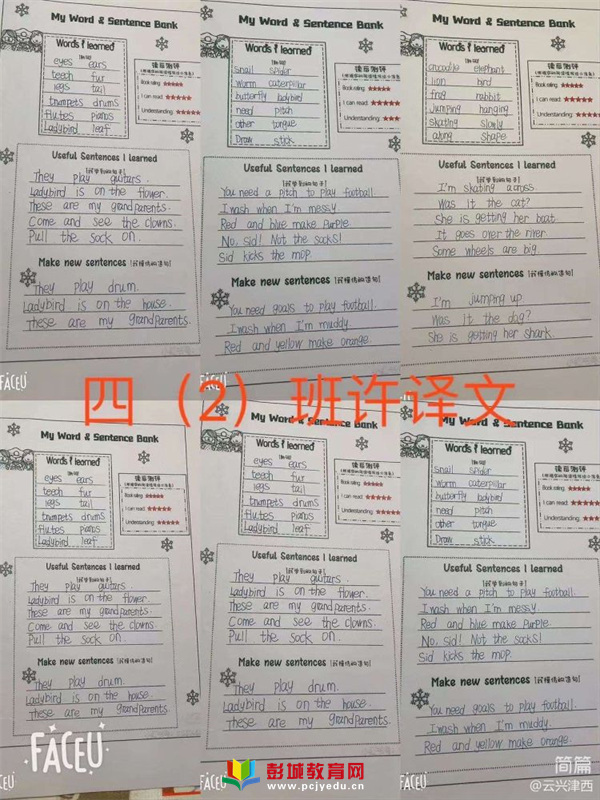 My Word & Sentence Bank
Words I learned
eyes ears
teeth fur
legs tail
trumpets drums
flutes pianos
Ladybird leaf
读后测评
Book rating: ★★★★★
I can read: ★★★★★
Understanding: ★★★★★
Useful Sentences I learned
They play guitars.
Ladybird is on the flower.
These are my grandparents.
Come and see the clowns.
Pull the sock on.
Make new sentences
They play drum.
Ladybird is on the house.
These are my grandparents.
FACEU
My Word & Sentence Bank
Words I learned
snail spider
worm caterpillar
butterfly ladybird
need pitch
other tongue
Draw stick
读后测评
Book rating: ★★★★★
I can read: ★★★★★
Understanding: ★★★★★
Useful Sentences I learned
You need a pitch to play football.
I wash when I'm messy.
Red and blue make purple.
No, Sid! Not the socks!
Sid kicks the mop.
Make new sentences
You need goals to play football.
I wash when I'm muddy.
Red and yellow make orange.
My Word & Sentence Bank
Words I learned
crocodile elephant
lion bird
frog rabbit
Jumping hanging
skating slowly
along shape
读后测评
Book rating: ★★★★★
I can read: ★★★★★
Understanding: ★★★★★
Useful Sentences I learned
I'm skating across.
Was it the cat?
She is getting her boat.
It goes over the river.
Some wheels are big.
Make new sentences
I'm jumping up.
Was it the dog?
She is getting her shark.
四（2）班许译文
My Word & Sentence Bank
Words I learned
eyes ears
teeth fur
legs tail
trumpets drums
flutes pianos
Ladybird leaf
读后测评
Book rating: ★★★★★
I can read: ★★★★★
Understanding: ★★★★★
Useful Sentences I learned
They play guitars.
Ladybird is on the flower.
These are my grandparents.
Come and see the clowns.
Pull the sock on.
Make new sentences
They play drum.
Ladybird is on the house.
These are my grandparents.
FACEU
My Word & Sentence Bank
Words I learned
eyes ears
teeth fur
legs tail
trumpets drums
flutes pianos
Ladybird leaf
读后测评
Book rating: ★★★★★
I can read: ★★★★★
Understanding: ★★★★★
Useful Sentences I learned
They play guitars.
Ladybird is on the flower.
These are my grandparents.
Come and see the clowns.
Pull the sock on.
Make new sentences
They play drum.
Ladybird is on the house.
These are my grandparents.
My Word & Sentence Bank
Words I learned
snail spider
worm caterpillar
butterfly ladybird
need pitch
other tongue
Draw stick
读后测评
Book rating: ★★★★★
I can read: ★★★★★
Understanding: ★★★★★
Useful Sentences I learned
You need a pitch to play football.
I wash when I'm messy.
Red and blue make purple.
No, Sid! Not the socks!
Sid kicks the mop.
Make new sentences
You need goals to play football.
I wash when I'm muddy.
Red and yellow make orange.
彭城教育网
www.pcjyedu.cn
简篇
@云兴津西